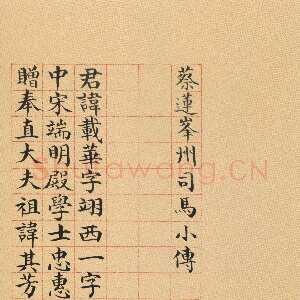 蔡蓮峯州司馬小傳
君諱載華字翊西一字
中宋端明殿學士忠惠
贈奉直大夫祖諱其芳